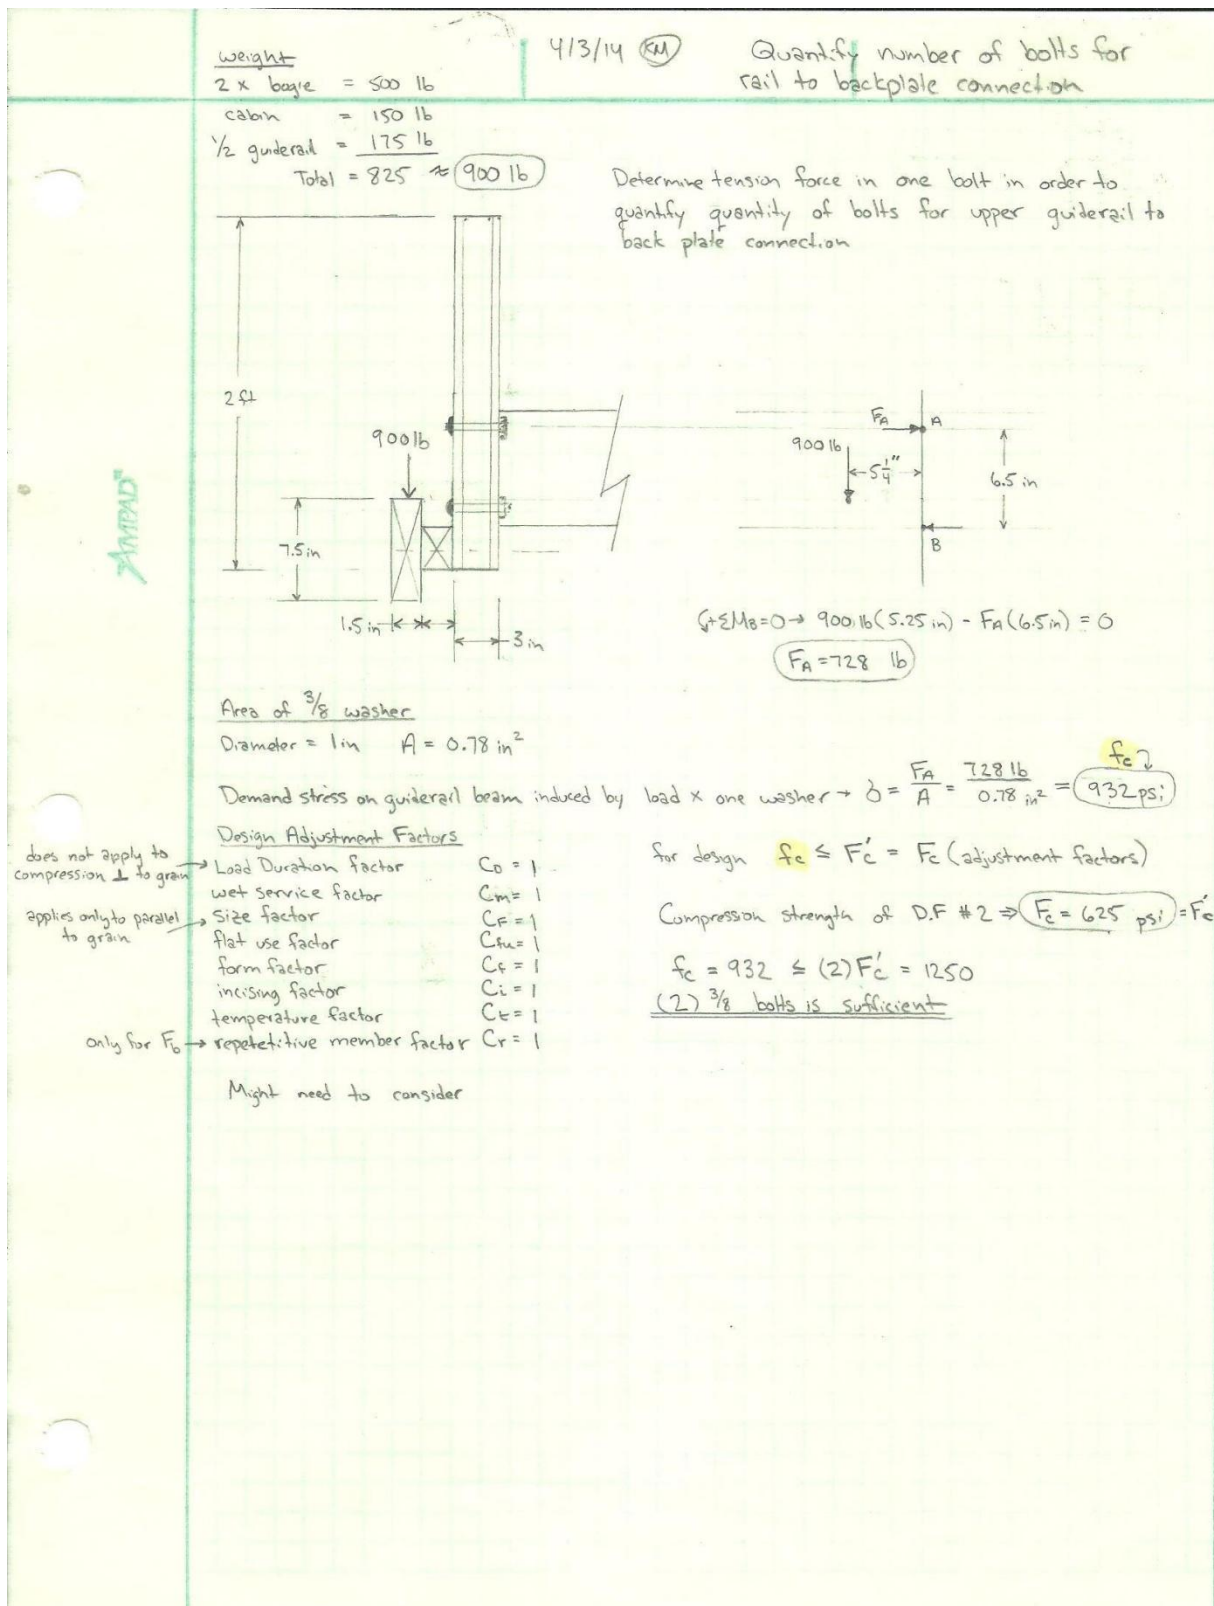 4/3/14 KM
Quantify number of bolts for
rail to backplate connection
weight
2 x bogie = 500 lb
cabin = 150 lb
1/2 guiderail = 175 lb
Total = 825 ≈ 900 lb
Determine tension force in one bolt in order to
quantify quantity of bolts for upper guiderail to
back plate connection
2 ft
900 lb
7.5 in
1.5 in
3 in
FA
A
900 lb
5 1/4"
6.5 in
B
AMPAD™
↺+ΣMB=0→ 900 lb(5.25 in) - FA(6.5 in) = 0
FA = 728 lb
Area of 3/8 washer
Diameter = 1 in A = 0.78 in²
fc
Demand stress on guiderail beam induced by load x one washer → σ = FA/A = 728 lb/0.78 in² = 932 psi
Design Adjustment Factors
does not apply to
compression ⊥ to grain → Load Duration factor CD = 1
wet service factor Cm = 1
applies only to parallel
to grain → size factor CF = 1
flat use factor Cfu = 1
form factor Cf = 1
incising factor Ci = 1
temperature factor Ct = 1
only for Fb → repetetitive member factor Cr = 1
Might need to consider
for design fc ≤ F'c = Fc (adjustment factors)
Compression strength of D.F #2 ⇒ Fc = 625 psi = F'c
fc = 932 ≤ (2)F'c = 1250
(2) 3/8 bolts is sufficient